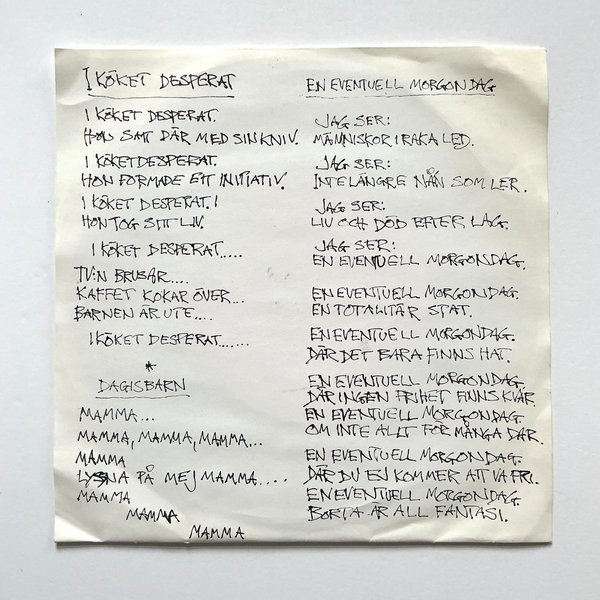 I KÖKET DESPERAT
I KÖKET DESPERAT.
HON SATT DÄR MED SIN KNIV.
I KÖKET DESPERAT.
HON FORMADE ETT INITIATIV.
I KÖKET DESPERAT.
HON TOG SITT LIV.
I KÖKET DESPERAT.....
TV:N BRUSAR....
KAFFET KOKAR ÖVER...
BARNEN ÄR UTE....
I KÖKET DESPERAT......
*
DAGISBARN
MAMMA...
MAMMA, MAMMA, MAMMA...
MAMMA
LYSSNA PÅ MEJ MAMMA....
MAMMA
MAMMA
MAMMA
EN EVENTUELL MORGONDAG
JAG SER:
MÄNNISKOR I RAKA LED.
JAG SER:
INTE LÄNGRE NÅN SOM LER.
JAG SER:
LIV OCH DÖD EFTER LAG.
JAG SER:
EN EVENTUELL MORGONDAG.
EN EVENTUELL MORGONDAG.
EN TOTALITÄR STAT.
EN EVENTUELL MORGONDAG.
DÄR DET BARA FINNS HAT.
EN EVENTUELL MORGONDAG.
DÄR INGEN FRIHET FINNS KVAR.
EN EVENTUELL MORGONDAG.
OM INTE ALLT FÖR MÅNGA DAR.
EN EVENTUELL MORGONDAG.
DÄR DU EJ KOMMER ATT VA FRI.
EN EVENTUELL MORGONDAG.
BORTA ÄR ALL FANTASI.